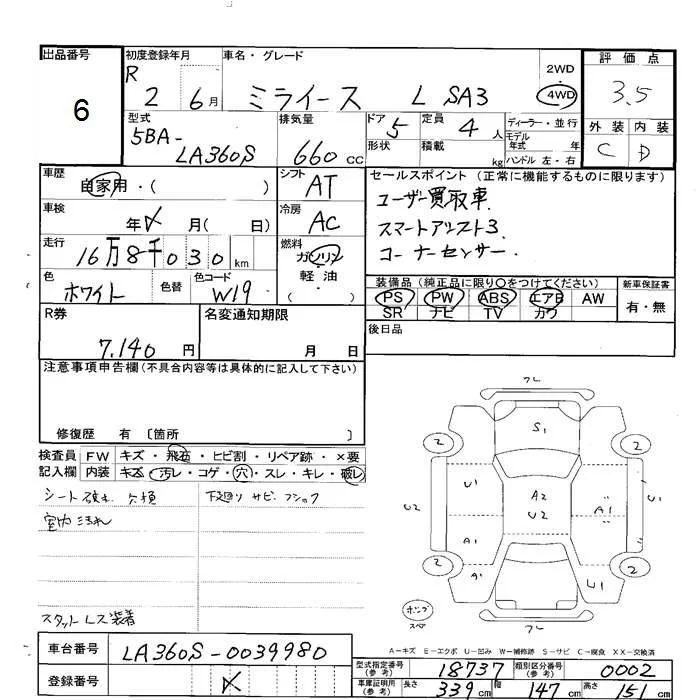 出品番号
6
初度登録年月
R 2 6月
車名・グレード
ミライース L SA3
2WD
4WD
評価点
3.5
外装 内装
C D
型式
5BA-
LA360S
排気量
660 cc
ドア 5
形状
定員 4人
積載 kg
ディーラー・並行
モデル年式 年
ハンドル 左・右
車歴
自家用・( )
シフト
AT
車検
年 月( 日)
冷房
AC
走行
16万8千030km
燃料
ガソリン
軽・油
( )
色
ホワイト
色替
色コード
W19
セールスポイント (正常に機能するものに限ります)
ユーザー買取車
スマートアシスト3
コーナーセンサー
装備品(純正品に限り○をつけてください)
PS PW ABS エアB AW
SR ナビ TV カワ
新車保証書
有・無
R券
7.140 円
名変通知期限
月 日
後日品
注意事項申告欄(不具合内容等は具体的に記入して下さい)
修復歴 有 〔箇所 〕
検査員記入欄
FW キズ・飛石・ヒビ割・リペア跡・×要
内装 キズ・汚レ・コゲ・穴・スレ・キレ・破レ
シート破れ 欠損
下廻り サビ
室内汚れ
スタットレス装着
フレ
S1
2 2
U1
U2
A2
U2
A1
U1
A1
A1
U1
2 2
スペア
フレ
A=キズ E=エクボ U=凹み W=補修跡 S=サビ C=腐食 XX=交換済
車台番号
LA360S-0039980
登録番号
型式指定番号(参考) 18737
類別区分番号(参考) 0002
車庫証明用(参考) 長さ 339cm 幅 147cm 高さ 151cm